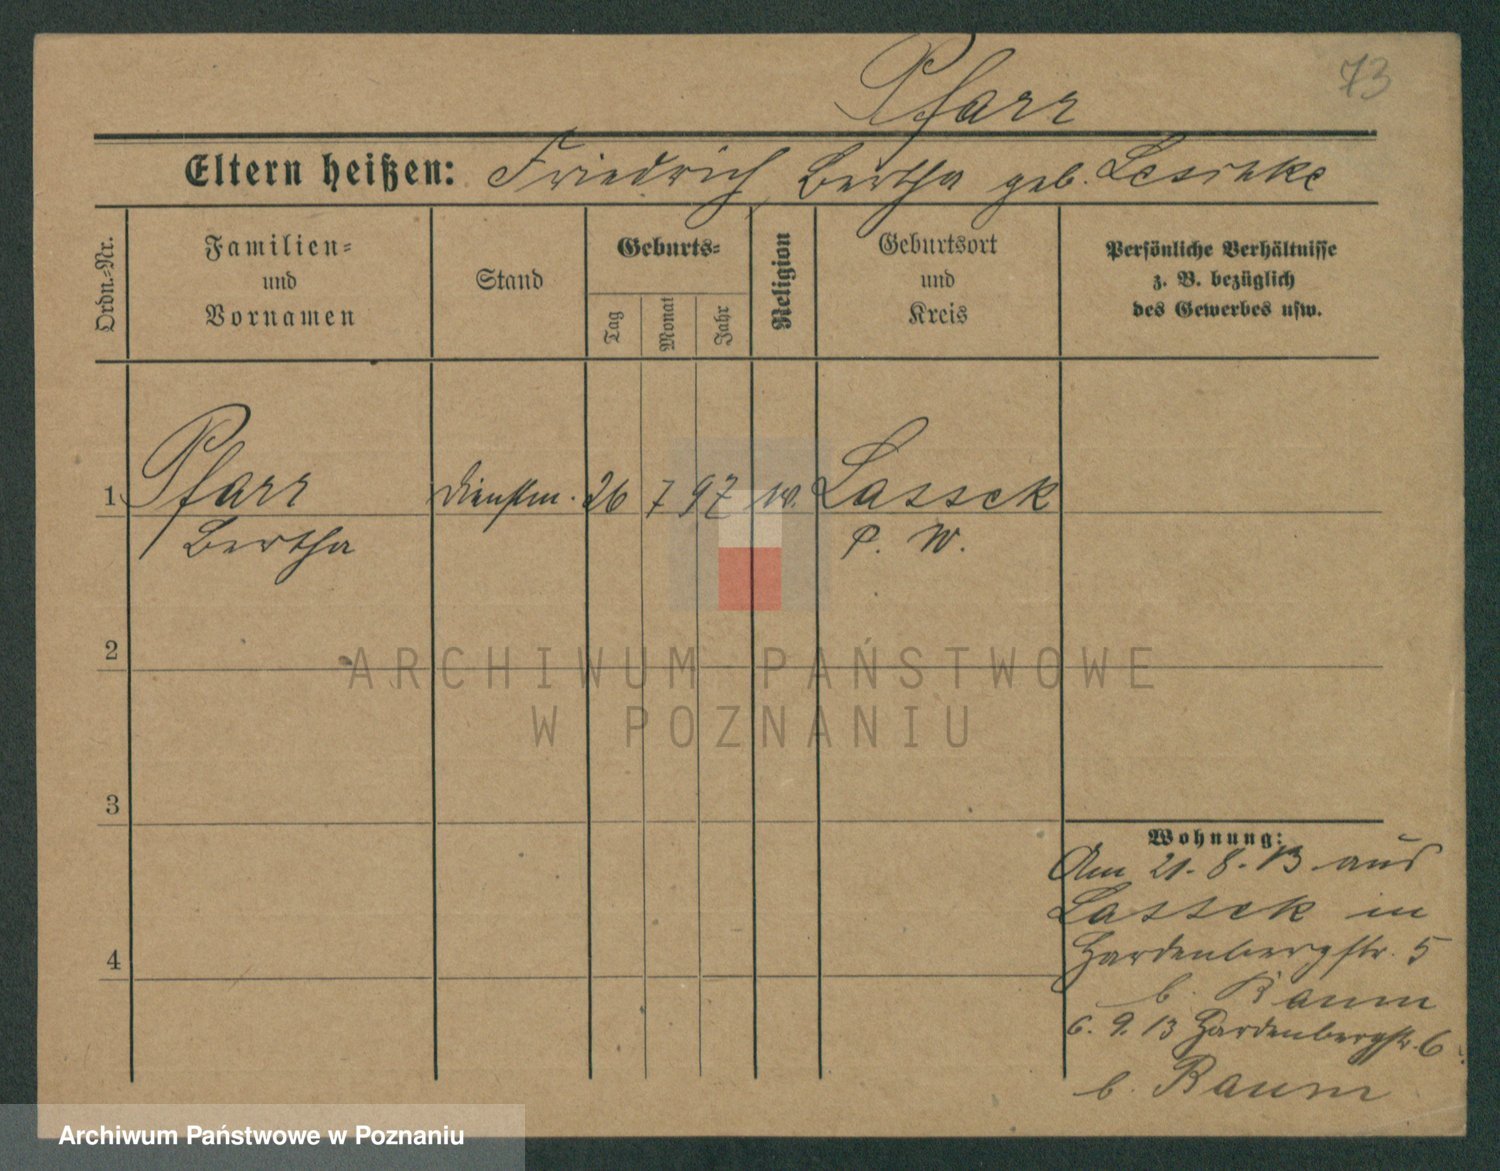 73
Pfarr
Eltern heißen: Friedrich, Bertha geb. Lesitzke
Ordn.-Nr.
Familien-
und
Vornamen
Stand
Geburts-
Tag
Monat
Jahr
Religion
Geburtsort
und
Kreis
Persönliche Verhältnisse
z. B. bezüglich
des Gewerbes usw.
1 Pfarr Dienstm. 26 7 97 Lassek
Bertha P. W.
2
3
4
Wohnung:
Am 21.8.13 aus
Lassek in
Hardenbergstr. 5
b. Raum
6.9.13 Hardenbergstr. 6
b. Raum
ARCHIWUM PAŃSTWOWE
W POZNANIU
Archiwum Państwowe w Poznaniu